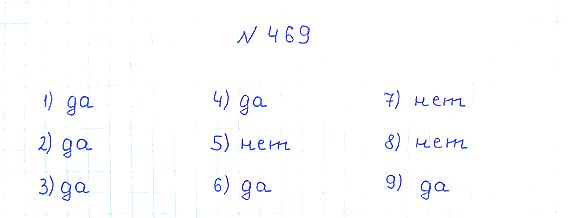 № 469
1) да 4) да 7) нет
2) да 5) нет 8) нет
3) да 6) да 9) да